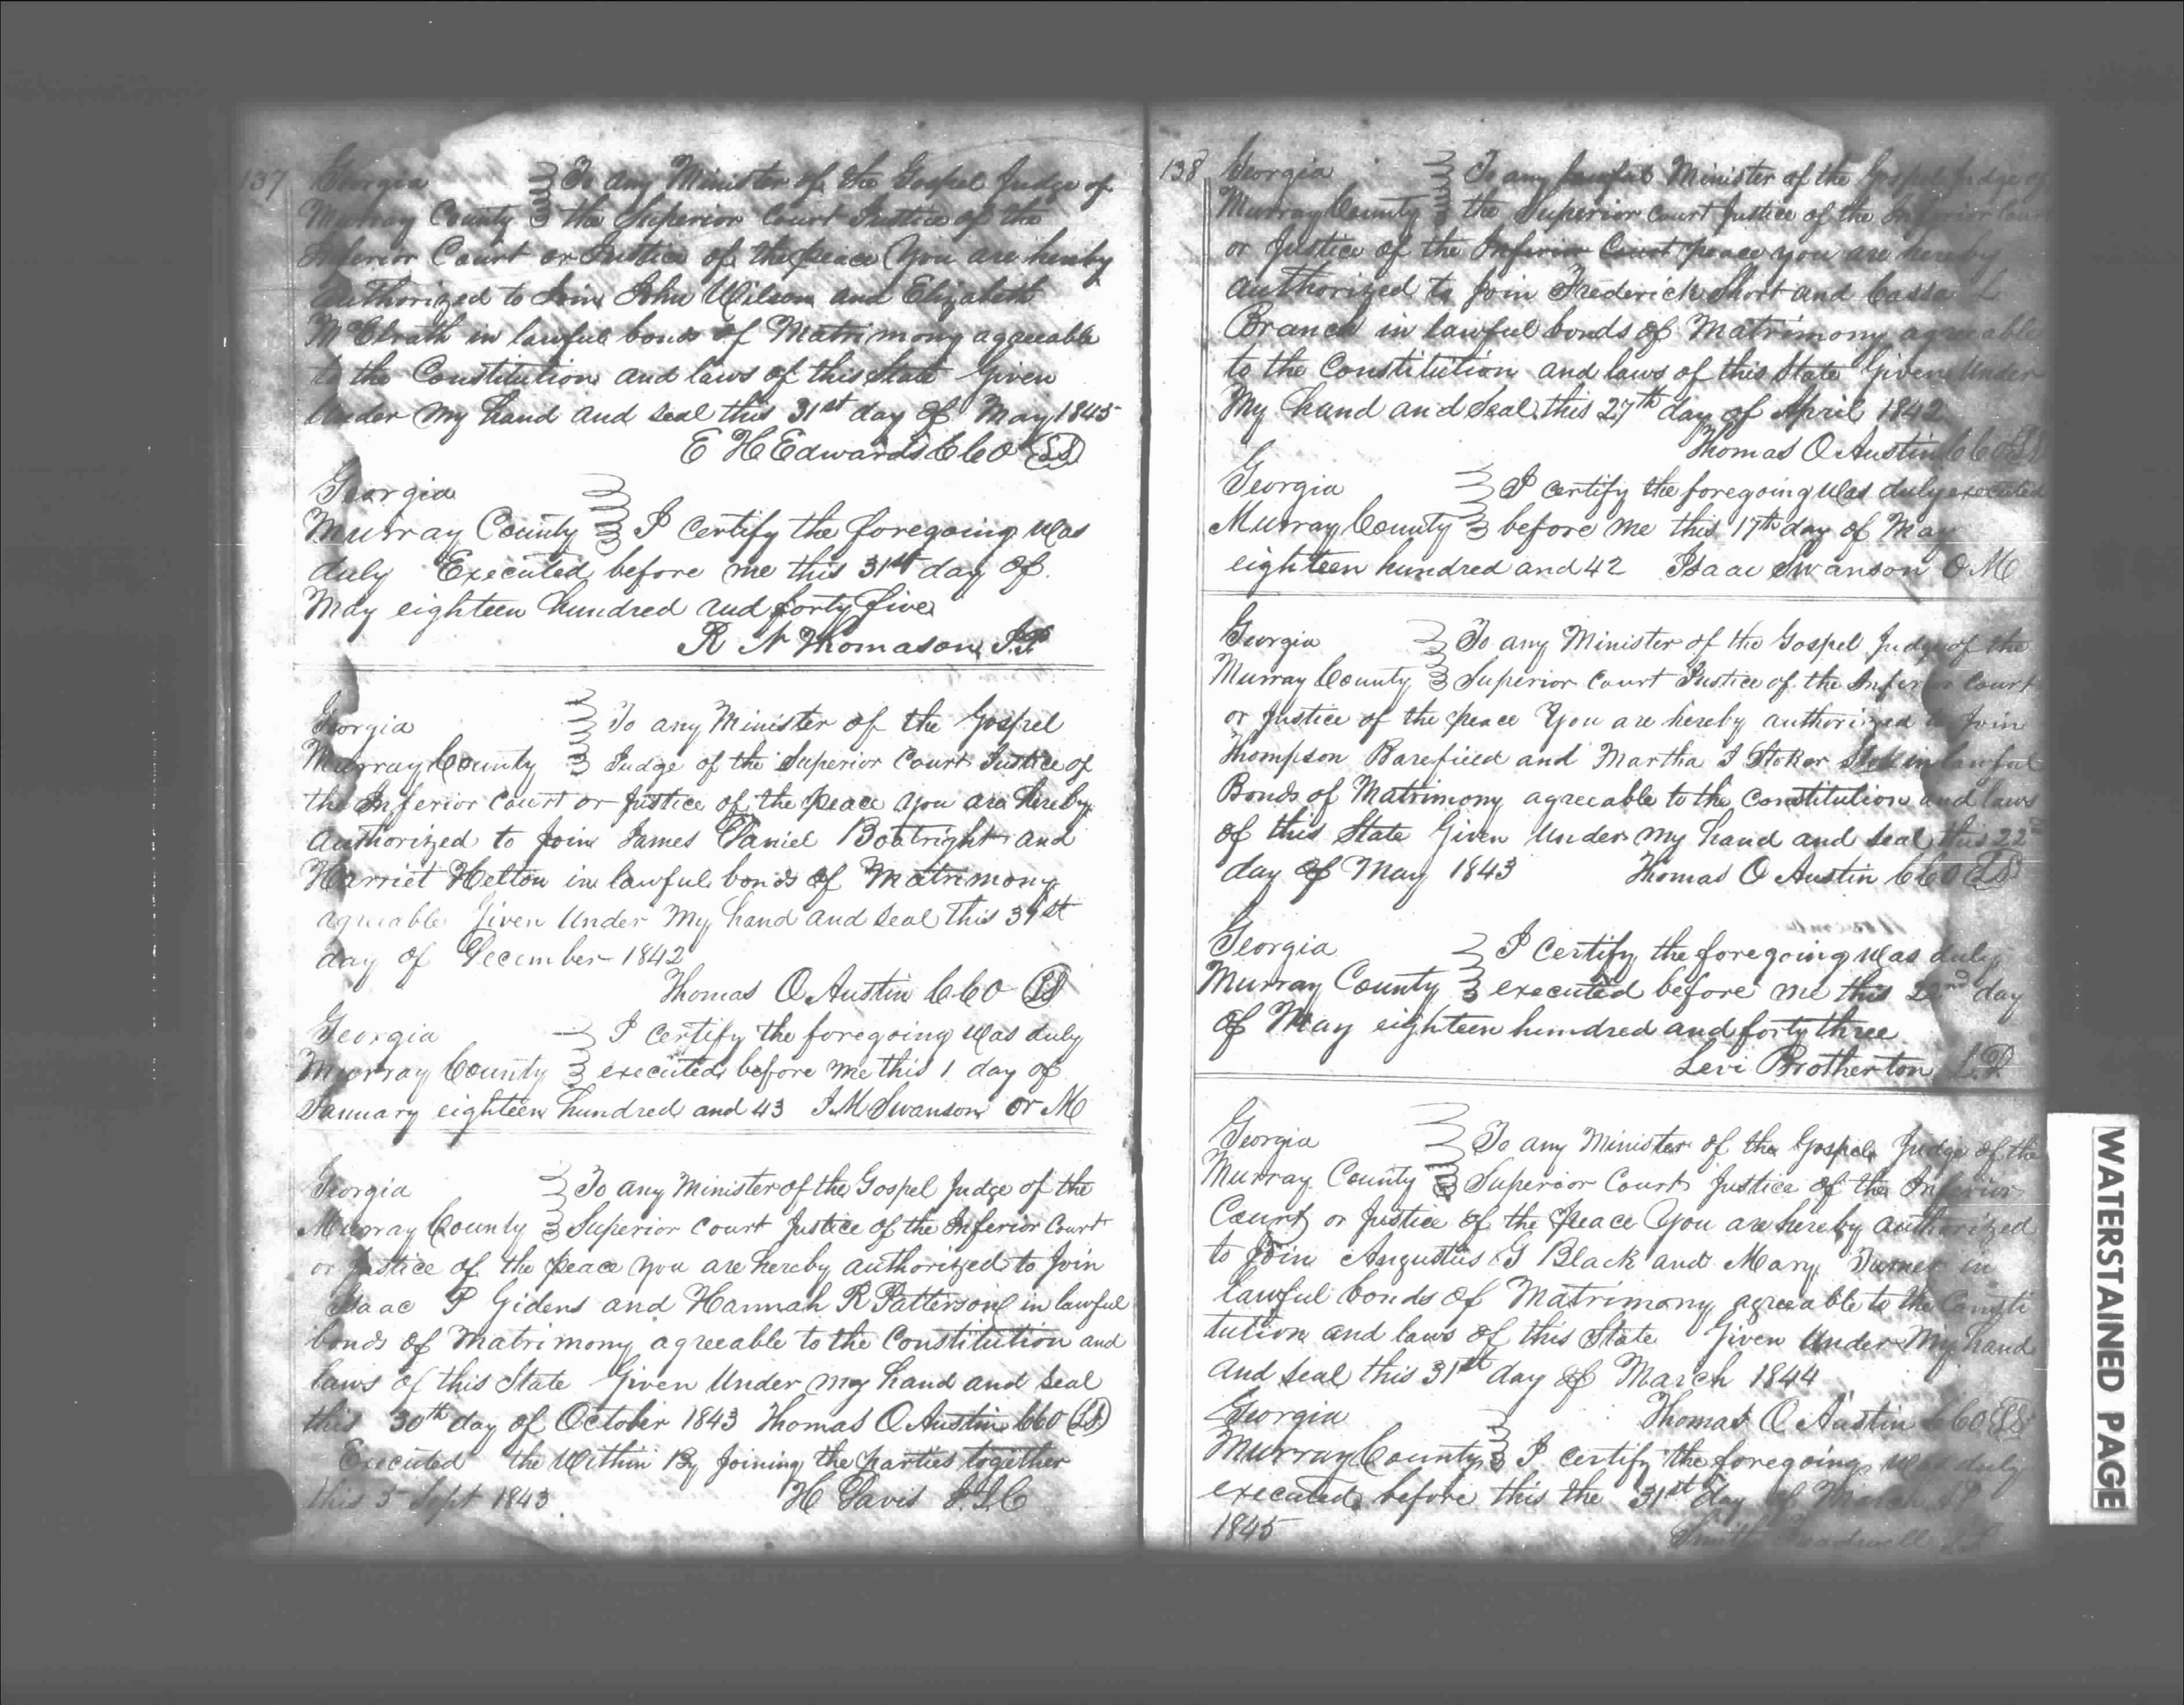 137
Georgia To any Minister of the Gospel Judge of
Murray County the Superior Court Justice of the
Inferior Court or Justice of the peace You are hereby
authorized to Join John Wilson and Elizabeth
McElrath in lawful bonds of Matrimony agreeable
to the Constitution and laws of this State Given
Under my hand and seal this 31st day of May 1845
E H Edwards CCO (LS)
Georgia
Murray County I certify the foregoing was
duly Executed before me this 31st day of
May eighteen hundred and forty five
R N Thomason J.P
Georgia To any Minister of the Gospel
Murray County Judge of the Superior Court Justice of
the Inferior Court or Justice of the peace You are hereby
authorized to Join James Daniel Boatright and
Harriet Helton in lawful bonds of Matrimony
agreeable Given Under My hand and seal this 31st
day of December 1842
Thomas O Austin CCO (LS)
Georgia I certify the foregoing was duly
Murray County executed before me this 1 day of
January eighteen hundred and 43 I M Swanson Or M
Georgia To any Minister of the Gospel Judge of the
Murray County Superior Court Justice of the Inferior Court
or Justice of the peace You are hereby authorized to Join
Isaac P Gidens and Hannah R Patterson in lawful
bonds of Matrimony agreeable to the Constitution and
laws of this State Given Under my hand and seal
this 30th day of October 1843 Thomas O Austin CCO (LS)
Executed the Within By Joining the parties together
this 5 Sept 1843 H Davis J.I.C
138 Georgia To any lawful Minister of the Gospel Judge of
Murray County the Superior Court Justice of the Inferior Court
or Justice of the Inferior Court peace you are hereby
authorized to Join Frederick Short and Cassa L
Branch in lawful bonds of Matrimony agreeable
to the Constitution and laws of this State Given Under
My hand and Seal this 27th day of April 1842
Thomas O Austin CCO LS
Georgia I certify the foregoing was duly executed
Murray County before me this 17th day of May
eighteen hundred and 42 Isaac Swanson O M
Georgia To any Minister of the Gospel Judge of the
Murray County Superior Court Justice of the Inferior Court
or Justice of the peace You are hereby authorized to Join
Thompson Barefield and Martha I Stoker in lawful
Bonds of Matrimony agreeable to the Constitution and laws
of this State Given Under my hand and seal this 22nd
day of May 1843 Thomas O Austin CCO (LS)
Georgia I certify the foregoing was duly
Murray County executed before me this 22nd day
of May eighteen hundred and forty three
Levi Brotherton L.D.
Georgia To any Minister of the Gospel Judge of the
Murray County Superior Court Justice of the Inferior
Court or Justice of the Peace You are hereby authorized
to Join Augustus G Black and Mary Turner in
lawful bonds of Matrimony agreeable to the Consti
tution and laws of this State Given Under My hand
and seal this 31st day of March 1844
Georgia Thomas O Austin CCO LS
Murray County I certify the foregoing was duly
executed before this the 31st day of March
1845 Smith Treadwell
WATERSTAINED PAGE